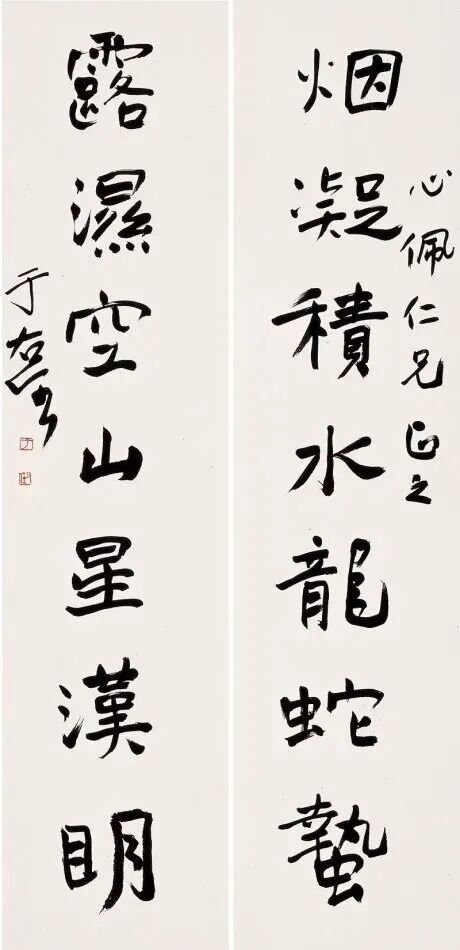 烟凝積水龍蛇蟄
心佩仁兄正之
露濕空山星漢明
于右任